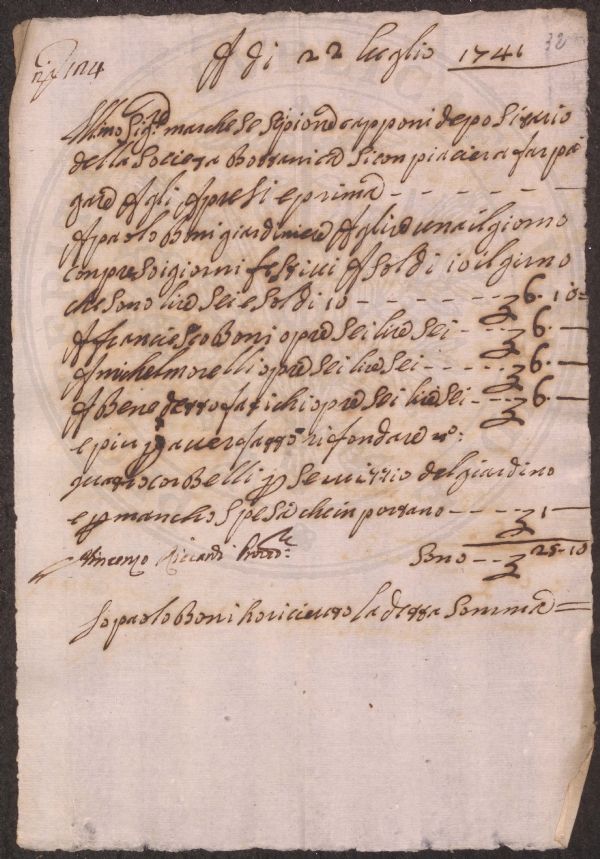 A di 22 luglio 1741
32
n° 124
Ill:mo Sig:re marchese Scipione capponi depositario
della Societa Bottanica Si conpiaciera far pa
gare A gli Apresi e prima - - - - - -
A paolo Boni giardiniere A lire una il giorno
conpreso i giorni festivi A soldi 10 il girno
che sono lire sei e soldi 10 - - - - - £ 6. 10 =
A franciesco Boni opre sei lire sei - - £ 6. —
A michel morelli opre sei lire sei - - - - £ 6. —
A Benedetto farichi opre sei lire sei - - - £ 6. —
e piu p avere fatto rifondare n°:
quatro corBelli p servitzio del giardino
e p mancho spesa che inportano - - - - £ 1 —
Vincenzo Riccardi Provv:re Sono - - £ 25 - 10
Io paolo Boni ho riceuto la detta Somma =